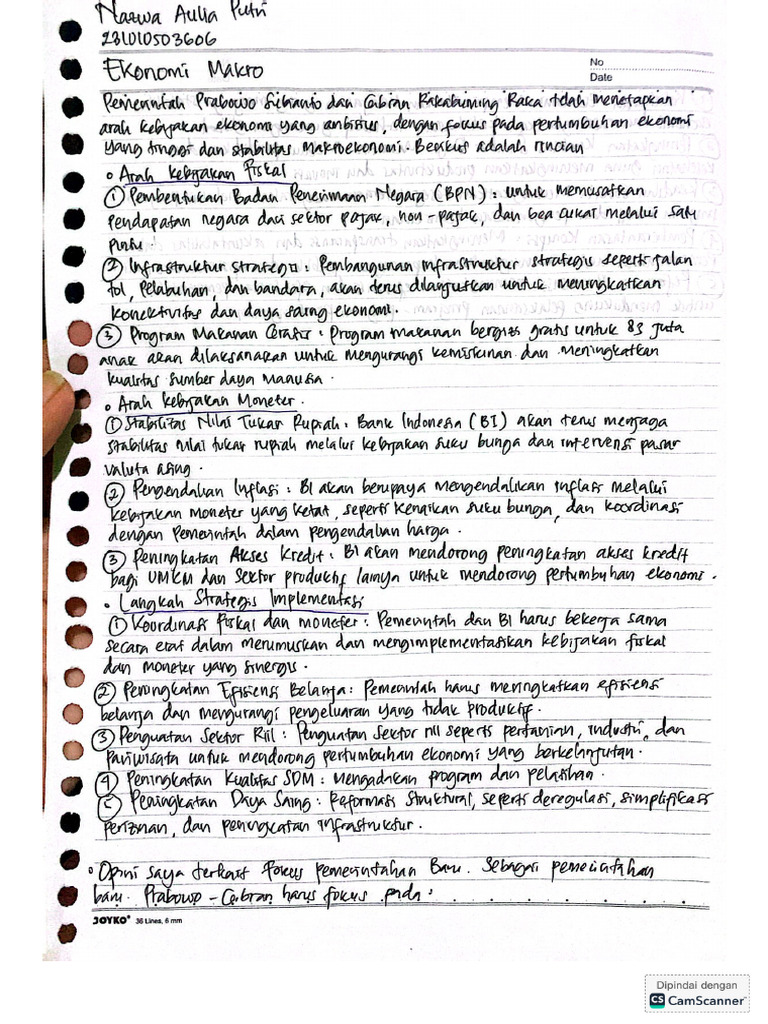 Nazwa Aulia Putri
231010503606
Ekonomi Makro
No
Date
Pemerintah Prabowo Subianto dan Gibran Rakabuming Raka telah menetapkan
arah kebijakan ekonomi yang ambisius, dengan fokus pada pertumbuhan ekonomi
yang tinggi dan stabilitas makroekonomi. Berikut adalah rincian
• Arah Kebijakan Fiskal
① Pembentukan Badan Penerimaan Negara (BPN): untuk memusatkan
pendapatan negara dari sektor pajak, non-pajak, dan bea cukai melalui satu
pintu.
② Infrastruktur strategis: Pembangunan infrastruktur strategis seperti jalan
tol, pelabuhan, dan bandara, akan terus dilanjutkan untuk meningkatkan
konektivitas dan daya saing ekonomi.
③ Program Makanan Gratis: Program makanan bergizi gratis untuk 83 juta
anak akan dilaksanakan untuk mengurangi kemiskinan dan meningkatkan
kualitas sumber daya manusia.
• Arah Kebijakan Moneter.
① Stabilitas Nilai Tukar Rupiah: Bank Indonesia (BI) akan terus menjaga
stabilitas nilai tukar rupiah melalui kebijakan suku bunga dan intervensi pasar
valuta asing.
② Pengendalian Inflasi: BI akan berupaya mengendalikan inflasi melalui
kebijakan moneter yang ketat, seperti kenaikan suku bunga, dan koordinasi
dengan pemerintah dalam pengendalian harga.
③ Peningkatan Akses Kredit: BI akan mendorong peningkatan akses kredit
bagi UMKM dan sektor produktif lainya untuk mendorong pertumbuhan ekonomi.
• Langkah Strategis Implementasi
① Koordinasi Fiskal dan moneter: Pemerintah dan BI harus bekerja sama
secara erat dalam merumuskan dan mengimplementasikan kebijakan fiskal
dan moneter yang sinergis.
② Peningkatan Efisiensi Belanja: Pemerintah harus meningkatkan efisiensi
belanja dan mengurangi pengeluaran yang tidak produktif.
③ Penguatan Sektor Riil: Penguatan sektor riil seperti pertanian, industri, dan
pariwisata untuk mendorong pertumbuhan ekonomi yang berkelanjutan.
④ Peningkatan Kualitas SDM: mengadakan program dan pelatihan.
⑤ Peningkatan Daya Saing: Reformasi struktural, seperti deregulasi, simplifikasi
perizinan, dan peningkatan infrastruktur.
• Opini saya terkait fokus pemerintahan Baru. Sebagai pemerintahan
baru. Prabowo - Gibran harus fokus pada:
JOYKO® 36 Lines, 6 mm
Dipindai dengan
CS CamScanner